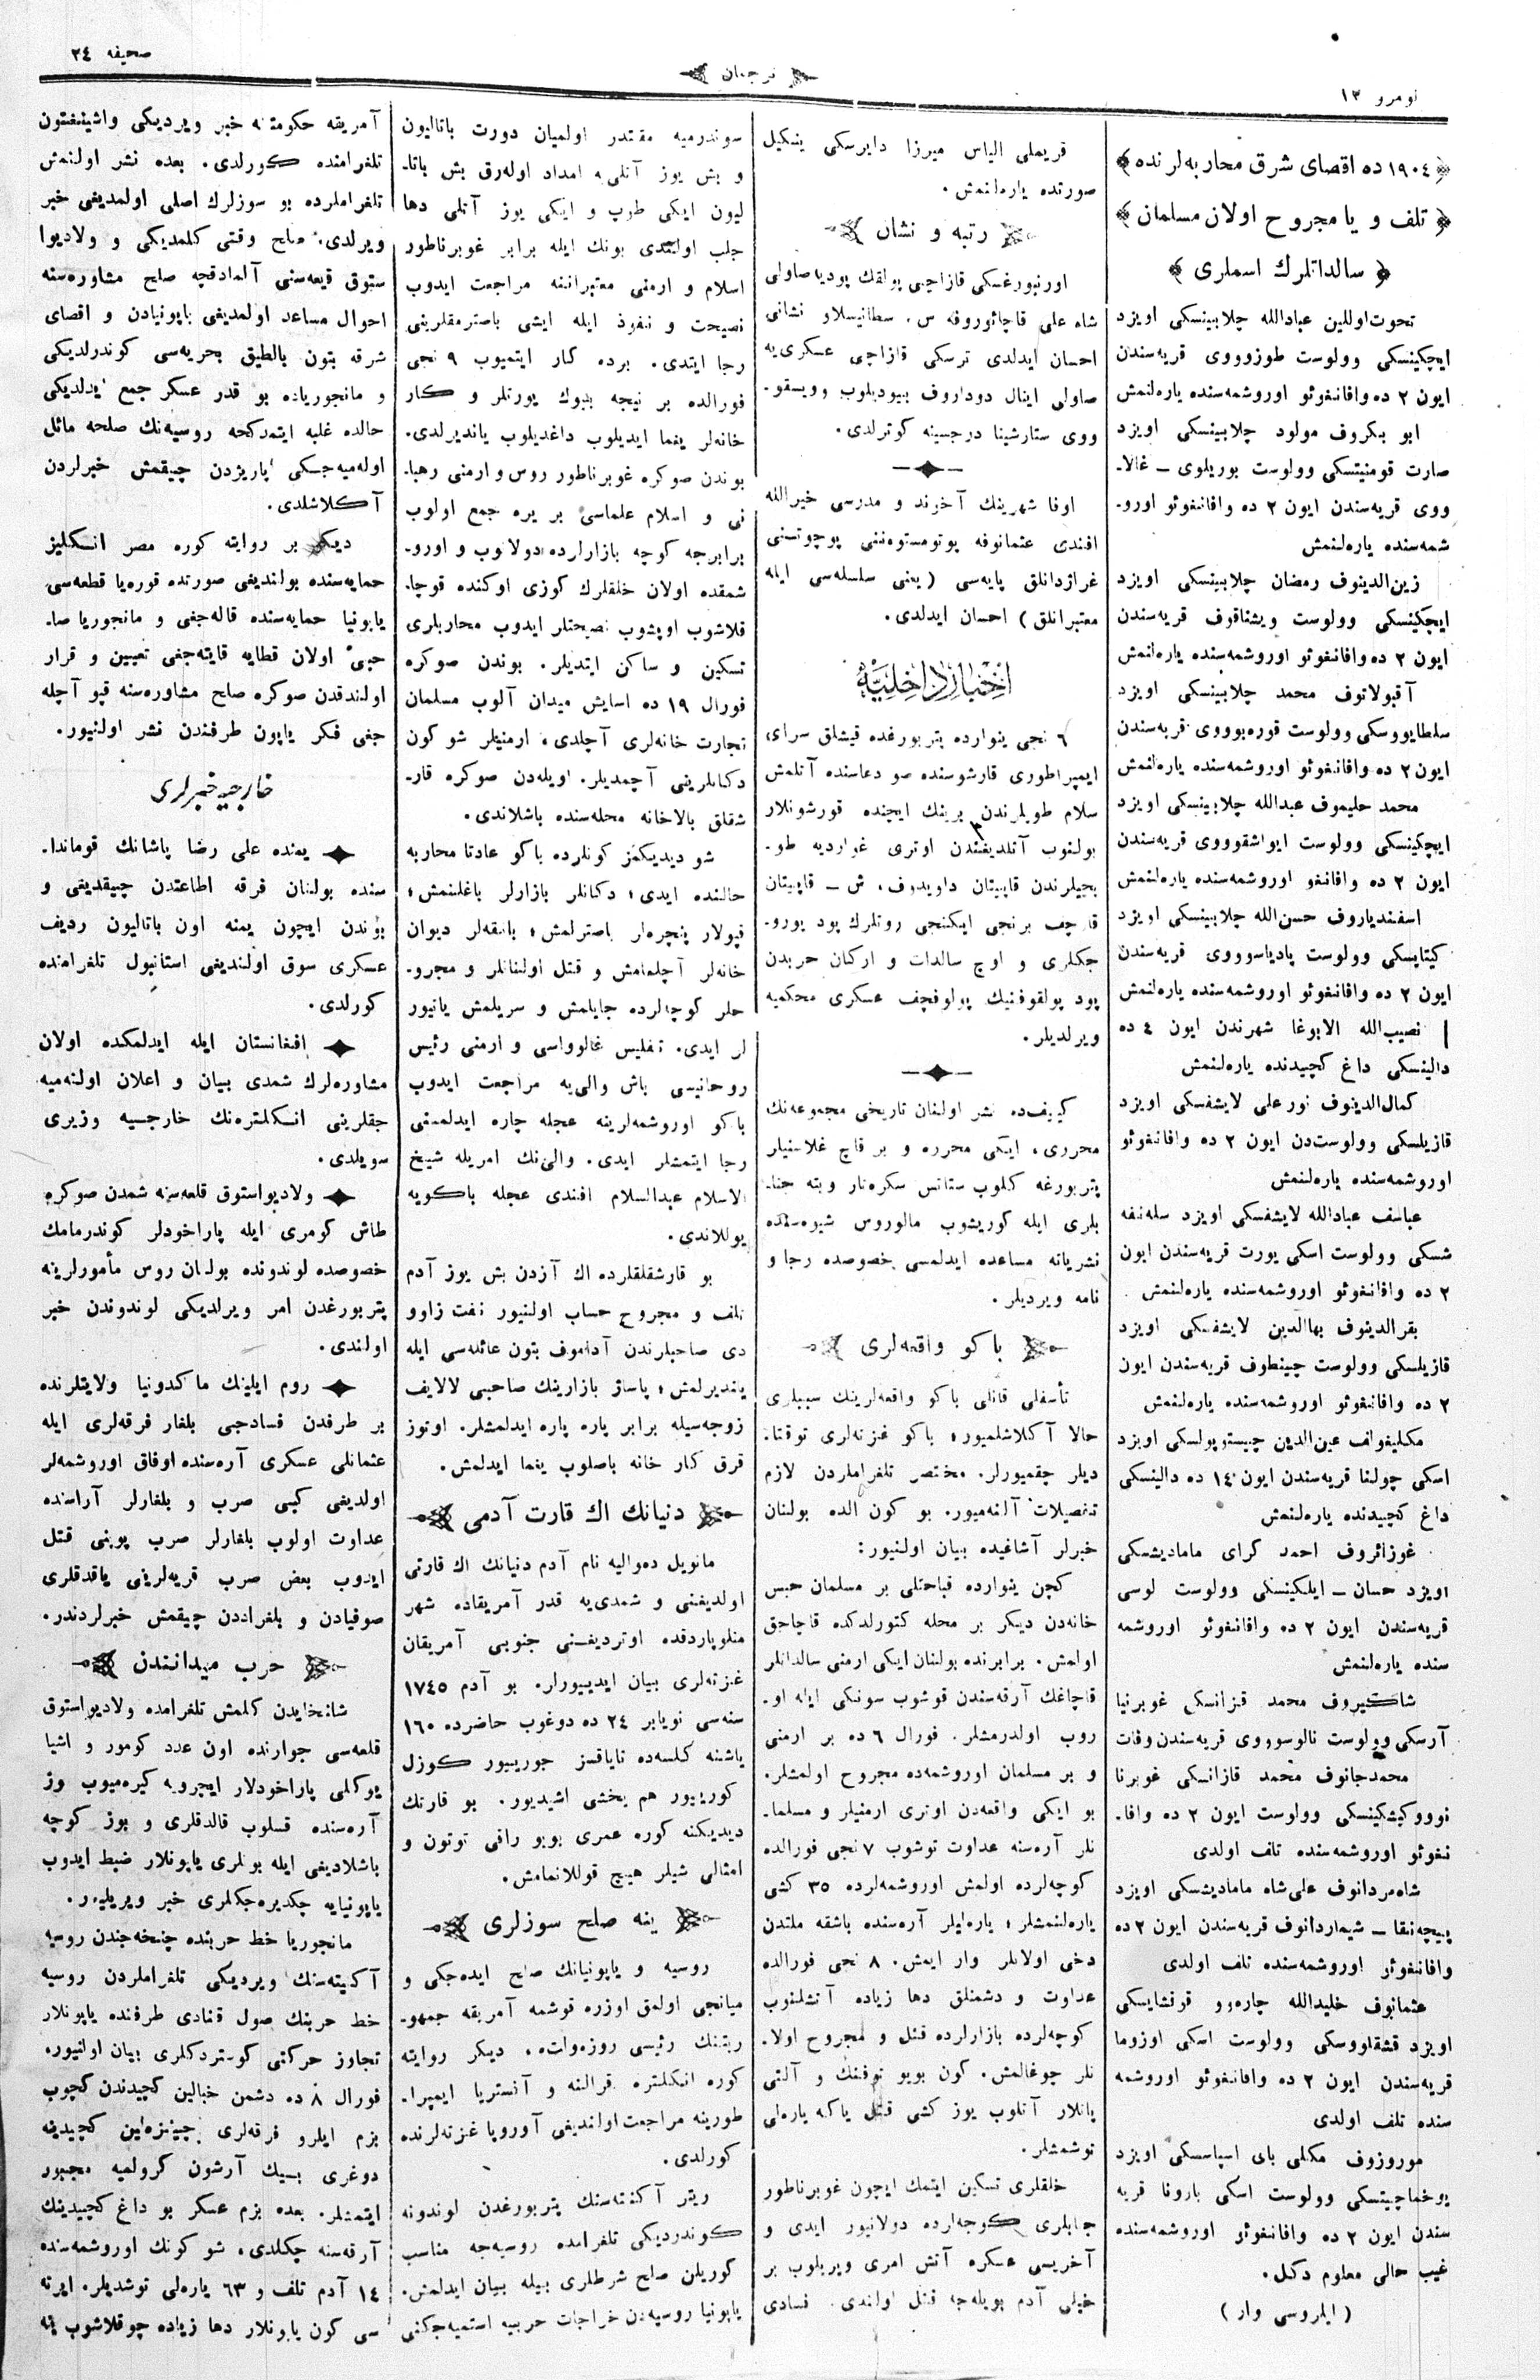 نومرو ١٣
ترجمان
صحیفه ٢٤
﴿ ١٩٠٤ ده اقصای شرق محاربه‌لرنده ﴾
﴿ تلف و یا مجروح اولان مسلمان ﴾
﴿ سالداتلرك اسملری ﴾
تحوت‌اوللین عبادالله چلابینسکی اویزد
ایچکینسکی وولوست طوزوووی قریه‌سندن
ایون ٢ ده وافانغوئو اوروشمه‌سنده یاره‌لنمش
ابو بکروف مولود چلابینسکی اویزد
صارت قومنیتسکی وولوست بوریلوی ــ غالا-
ووی قریه‌سندن ایون ٢ ده وافانغوئو اورو-
شمه‌سنده یاره‌لنمش
زین‌الدینوف رمضان چلابینسکی اویزد
ایچکینسکی وولوست ویشناقوف قریه‌سندن
ایون ٢ ده وافانغوئو اوروشمه‌سنده یاره‌لنمش
آقبولاتوف محمد چلابینسکی اویزد
سلطایووسکی وولوست قوره‌بوووی قریه‌سندن
ایون ٢ ده وافانغوئو اوروشمه‌سنده یاره‌لنمش
محمد حلیموف عبدالله چلابینسکی اویزد
ایچکینسکی وولوست ایواشقوووی قریه‌سندن
ایون ٢ ده وافانغو اوروشمه‌سنده یاره‌لنمش
اسفندیاروف حسن‌الله چلابینسکی اویزد
کیتایسکی وولوست پادیاسوووی قریه‌سندن
ایون ٢ ده وافانغوئو اوروشمه‌سنده یاره‌لنمش
نصیب‌الله الابوغا شهرندن ایون ٤ ده
دالینسکی داغ کچیدنده یاره‌لنمش
کمال‌الدینوف نورعلی لایشفسکی اویزد
قازیلسکی وولوست‌دن ایون ٢ ده وافانغوئو
اوروشمه‌سنده یاره‌لنمش
عباسف عبادالله لایشفسکی اویزد سله‌نغه
شسکی وولوست اسکی یورت قریه‌سندن ایون
٢ ده وافانغوئو اوروشمه‌سنده یاره‌لنمش
بقرالدینوف بهاالدین لایشفسکی اویزد
قازیلسکی وولوست چینطوف قریه‌سندن ایون
٢ ده وافانغوئو اوروشمه‌سنده یاره‌لنمش
مکلیفوانف عین‌الدین چیستوپولسکی اویزد
اسکی چولنا قریه‌سندن ایون ١٤ ده دالینسکی
داغ کچیدنده یاره‌لنمش
غوزائروف احمد کرای مامادیشسکی
اویزد حسان ــ ایلیکینسکی وولوست لوسی
قریه‌سندن ایون ٢ ده وافانغوئو اوروشمه
سنده یاره‌لنمش
شاکیروف محمد قزانسکی غوبرنیا
آرسکی وولوست نالوسوووی قریه‌سندن وفات
محمدجانوف محمد قازانسکی غوبرنا
نوووکیشکینسکی وولوست ایون ٢ ده وافا-
نغوئو اوروشمه‌سنده تلف اولدی
شاه‌مردانوف علی‌شاه مامادیشسکی اویزد
پیچه‌نقا ــ شیماردانوف قریه‌سندن ایون ٢ ده
وافانغوئو اوروشمه‌سنده تلف اولدی
عثمانوف خلیدالله چاره‌وو قوقشایسکی
اویزد قشقلووسکی وولوست اسکی اوزوما
قریه‌سندن ایون ٢ ده وافانغوئو اوروشمه
سنده تلف اولدی
موروزوف مکلی بای اسپاسسکی اویزد
یوخماچیتسکی وولوست اسکی بارونا قریه
سندن ایون ٢ ده وافانغوئو اوروشمه‌سنده
غیب حالی معلوم دکل.
( ایلروسی وار )
قریملی الیاس میرزا دایرسکی ینکیل
صورتده یاره‌لنمش.
رتبه و نشان
اورنبورغسکی قازاچی پولقك پودیاصاولی
شاه علی قاچائوروفه س. سطانیسلاو نشانی
احسان ایدلدی ترسکی قازاچی عسکری‌یه
صاولی اینال دوداروف بیودیلوب وویسقو-
ووی ستارشینا درجسینه کوترلدی.
اوفا شهرینك آخوند و مدرسی خیرالله
افندی عثمانوفه پوتومستوه‌ننی پوچوتنی
غراژدانلق پایه‌سی (یعنی سلسله‌سی ایله
معتبرانلق) احسان ایدلدی.
اخبار داخلیه
٦ نجی ینوارده پتربورغده قیشلق سرای
ایمپراطوری قارشوسنده صو دعاسنده آتلمش
سلام طوپلرندن برینك ایچنده قورشونلار
بولنوب آتلدیغندن اوتری غواردیه طو-
پچیلرندن قاپیتان داویدوف، ش ــ قاپیتان
قارچف برنجی ایکنجی روتلرك پود پورو-
چکلری و اوچ سالدات و ارکان حربدن
پود پولقوفنیك پولوفچف عسکری محکمیه
ویرلدیلر.
کیف‌ده نشر اولنان تاریخی مجموعه‌نك
محرری، ایکی محرره و بر قاچ غلاسنیلر
پتربورغه کلوب ستاتس سکره‌تار ویته جنا-
بلری ایله کوریشوب مالوروس شیوه‌سنده
نشریاته مساعده ایدلمسی خصوصده رجا و
نامه ویردیلر.
باکو واقعه‌لری
تأسفلی قانلی باکو واقعه‌لرینك سببلری
حالا آکلاشلمیور؛ باکو غزته‌لری توقتا-
دیلر چقمیورلر. مختصر تلغراملردن لازم
تفصیلات آلنه‌میور. بو کون الده بولنان
خبرلر آشاغیده بیان اولنیور:
کچن ینوارده قباحتلی بر مسلمان حبس
خانه‌دن دیکر بر محله کتورلدکده قاچاجق
اولمش. برابرنده بولنان ایکی ارمنی سالداتلر
قاچاغك آرقه‌سندن قوشوب سونکی ایله او-
روب اولدرمشلر. فورال ٦ ده بر ارمنی
و بر مسلمان اوروشمه‌ده مجروح اولمشلر.
بو ایکی واقعه‌دن اوتری ارمنیلر و مسلما-
نلر آره‌سنه عداوت توشوب ٧ نجی فورالده
کوچه‌لرده اولمش اوروشمه‌لرده ٣٥ کشی
یاره‌لنمشلر؛ یاره‌لیلر آره‌سنده باشقه ملتدن
دخی اولانلر وار ایمش. ٨ نجی فورالده
عداوت و دشمنلق دها زیاده آتشلنوب
کوچه‌لرده بازارلرده قتل و مجروح اولا-
نلر چوغالمش. کون بویو توفنك و آلتی
پاتلار آتلوب یوز کشی قتل یاکه یاره‌لی
توشمشلر.
خلقلری تسکین ایتمك ایچون غوبرناطور
جنابلری کوچه‌لرده دولانیور ایدی و
آخریسی عسکره آتش امری ویریلوب بر
خیلی آدم بویله‌جه قتل اولندی. فسادی
سوندرمیه مقتدر اولمیان دورت باتالیون
و بش یوز آتلی‌یه امداد اوله‌رق بش باتا-
لیون ایکی طوپ و ایکی یوز آتلی دها
جلب اولندی بونك ایله برابر غوبرناطور
اسلام و ارمنی معتبراننه مراجعت ایدوب
نصیحت و نفوذ ایله ایشی باصترمقلرینی
رجا ایتدی. برده کار ایتمیوب ٩ نجی
فورالده بر نیجه بیوك یورتلر و کار
خانه‌لر یغما ایدیلوب داغدیلوب یاندیرلدی.
بوندن صوکره غوبرناطور روس و ارمنی رهبا-
نی و اسلام علماسی بر یره جمع اولوب
برابرجه کوچه بازارلرده دولانوب و اورو-
شمقده اولان خلقلرك کوزی اوکنده قوچا-
قلاشوب اوپشوب نصیحتلر ایدوب محاربلری
تسکین و ساکن ایتدیلر. بوندن صوکره
فورال ١٩ ده اسایش میدان آلوب مسلمان
تجارت خانه‌لری آچلدی، ارمنیلر شو کون
دکانلرینی آچمدیلر. اویله‌دن صوکره قار-
شقلق بالاخانه محله‌سنده باشلاندی.
شو دیدیکمز کونلرده باکو عادتا محاربه
حالنده ایدی؛ دکانلر بازارلر باغلنمش؛
قپولار پنجره‌لر باصترلمش؛ بانقه‌لر دیوان
خانه‌لر آچلمامش و قتل اولنانلر و مجرو-
حلر کوچه‌لرده جایلمش و سریلمش یاتیور
لر ایدی. تفلیس غالوواسی و ارمنی رئیس
روحانیسی باش والی‌یه مراجعت ایدوب
باکو اوروشمه‌لرینه عجله چاره ایدلمسنی
رجا ایتمشلر ایدی. والی‌نك امریله شیخ
الاسلام عبدالسلام افندی عجله باکویه
یوللاندی.
بو قارشقلقلرده اك آزدن بش یوز آدم
تلف و مجروح حساب اولنیور نفت زاوو
دی صاحبلرندن آداموف بتون عائله‌سی ایله
یاندیرلمش؛ پاساژ بازارینك صاحبی لالایف
زوجه‌سیله برابر پاره پاره ایدلمشلر. اوتوز
قرق کار خانه باصلوب یغما ایدلمش.
دنیانك اك قارت آدمی
مانویل ده‌والیه نام آدم دنیانك اك قارتی
اولدیغنی و شمدی‌یه قدر آمریقاده شهر
منلوپاردقده اوتردیغنی جنوبی آمریقان
غزته‌لری بیان ایدییورلر. بو آدم ١٧٤٥
سنه‌سی نویابر ٢٤ ده دوغوب حاضرده ١٦٠
یاشنه کلسه‌ده تایاقسز جوریییور کوزل
کوریییور هم یخشی اشیدیور. بو قارتك
دیدیکنه کوره عمری بویو راقی توتون و
امثالی شیلر هیچ قوللانمامش.
ینه صلح سوزلری
روسیه و یاپونیانك صلح ایده‌جکی و
میانجی اولمق اوزره قوشمه آمریقه جمهو-
ریتنك رئیسی روزه‌وات، دیکر روایته
کوره انکلتره قرالنه و آنستریا ایمپرا-
طورینه مراجعت اولندیغی آوروپا غزته‌لرنده
کورلدی.
ریتر آکنته‌سنك پتربورغدن لوندونه
کوندردیکی تلغرامده روسیه‌جه مناسب
کوریلن صلح شرطلری بیله بیان ایدلمش.
یاپونیا روسیه‌دن خراجات حربیه استمیه‌جکنی
آمریقه حکومتنه خبر ویردیکی واشینغتون
تلغرامنده کورلدی. بعده نشر اولنمش
تلغراملرده بو سوزلرك اصلی اولمدیغی خبر
ویرلدی. صلح وقتی کلمدیکی و ولادیوا
ستوق قیعه‌سنی آلمادقچه صلح مشاوره‌سنه
احوال مساعد اولمدیغی یاپونیادن و اقصای
شرقه بتون بالطیق بحریه‌سی کوندرلدیکی
و مانجوریاده بو قدر عسکر جمع ایدلدیکی
حالده غلبه ایتمدکجه روسیه‌نك صلحه مائل
اوله‌میه‌جکی پاریژدن چیقمش خبرلردن
آکلاشلدی.
دیکر بر روایته کوره مصر انکلیز
حمایه‌سنده بولندیغی صورتده قوره‌یا قطعه‌سی
یابونیا حمایه‌سنده قاله‌جغی و مانجوریا صا-
حبی اولان قطایه قایته‌جغی تعیین و قرار
اولندقدن صوکره صلح مشاوره‌سنه قپو آچله
جغی فکر یاپون طرفندن نشر اولنیور.
خارجیه خبرلری
یمنده علی رضا پاشانك قوماندا-
سنده بولنان فرقه اطاعتدن چیقدیغی و
بوندن ایچون یمنه اون باتالیون ردیف
عسکری سوق اولندیغی استانبول تلغرامنده
کورلدی.
افغانستان ایله ایدلمکده اولان
مشاوره‌لرك شمدی بیان و اعلان اولنه‌میه
جقلرینی انکلتره‌نك خارجیه وزیری
سویلدی.
ولادیواستوق قلعه‌سنه شمدن صوکره
طاش کومری ایله پاراخودلر کوندرمامك
خصوصده لوندونده بولنان روس مأمورلرینه
پتربورغدن امر ویرلدیکی لوندوندن خبر
اولندی.
روم ایلینك ماکدونیا ولایتلرنده
بر طرفدن فسادجی بلغار فرقه‌لری ایله
عثمانلی عسکری آره‌سنده اوفاق اوروشمه‌لر
اولدیغی کبی صرب و بلغارلر آراسنده
عداوت اولوب بلغارلر صرب پوپنی قتل
ایدوب بعض صرب قریه‌لرینی یاقدقلری
صوفیادن و بلغراددن چیقمش خبرلردندر.
حرب میدانندن
شانخایدن کلمش تلغرامده ولادیواستوق
قلعه‌سی جوارنده اون عدد کومور و اشیا
یوکلمی پاراخودلار ایچرویه کیره‌میوب وز
آره‌سنده قسلوب قالدقلری و بوز کوچه
باشلادیغی ایله بونلری یاپونلار ضبط ایدوب
یاپونیایه چکدیره‌جکلری خبر ویریلیور.
مانجوریا خط حربنده چنخه‌جندن روسیه
آکنته‌سنك ویردیکی تلغراملردن روسیه
خط حربنك صول قنادی طرفنده یاپونلار
تجاوز حرکتی کوستردکلری بیان اولنیور.
فورال ٨ ده دشمن خبالین کچیدندن کچوب
بزم ایلرو فرقه‌لری چینزه‌لین کچیدینه
دوغری بیك آرشون کرولمیه مجبور
ایتمشلر. بعده بزم عسکر بو داغ کچیدینك
آرقه‌سنه چکلدی، شو کونك اوروشمه‌سنده
١٤ آدم تلف و ٦٣ یاره‌لی توشدیلر. ایرته
سی کون یاپونلار دها زیاده چوقلاشوب ینه